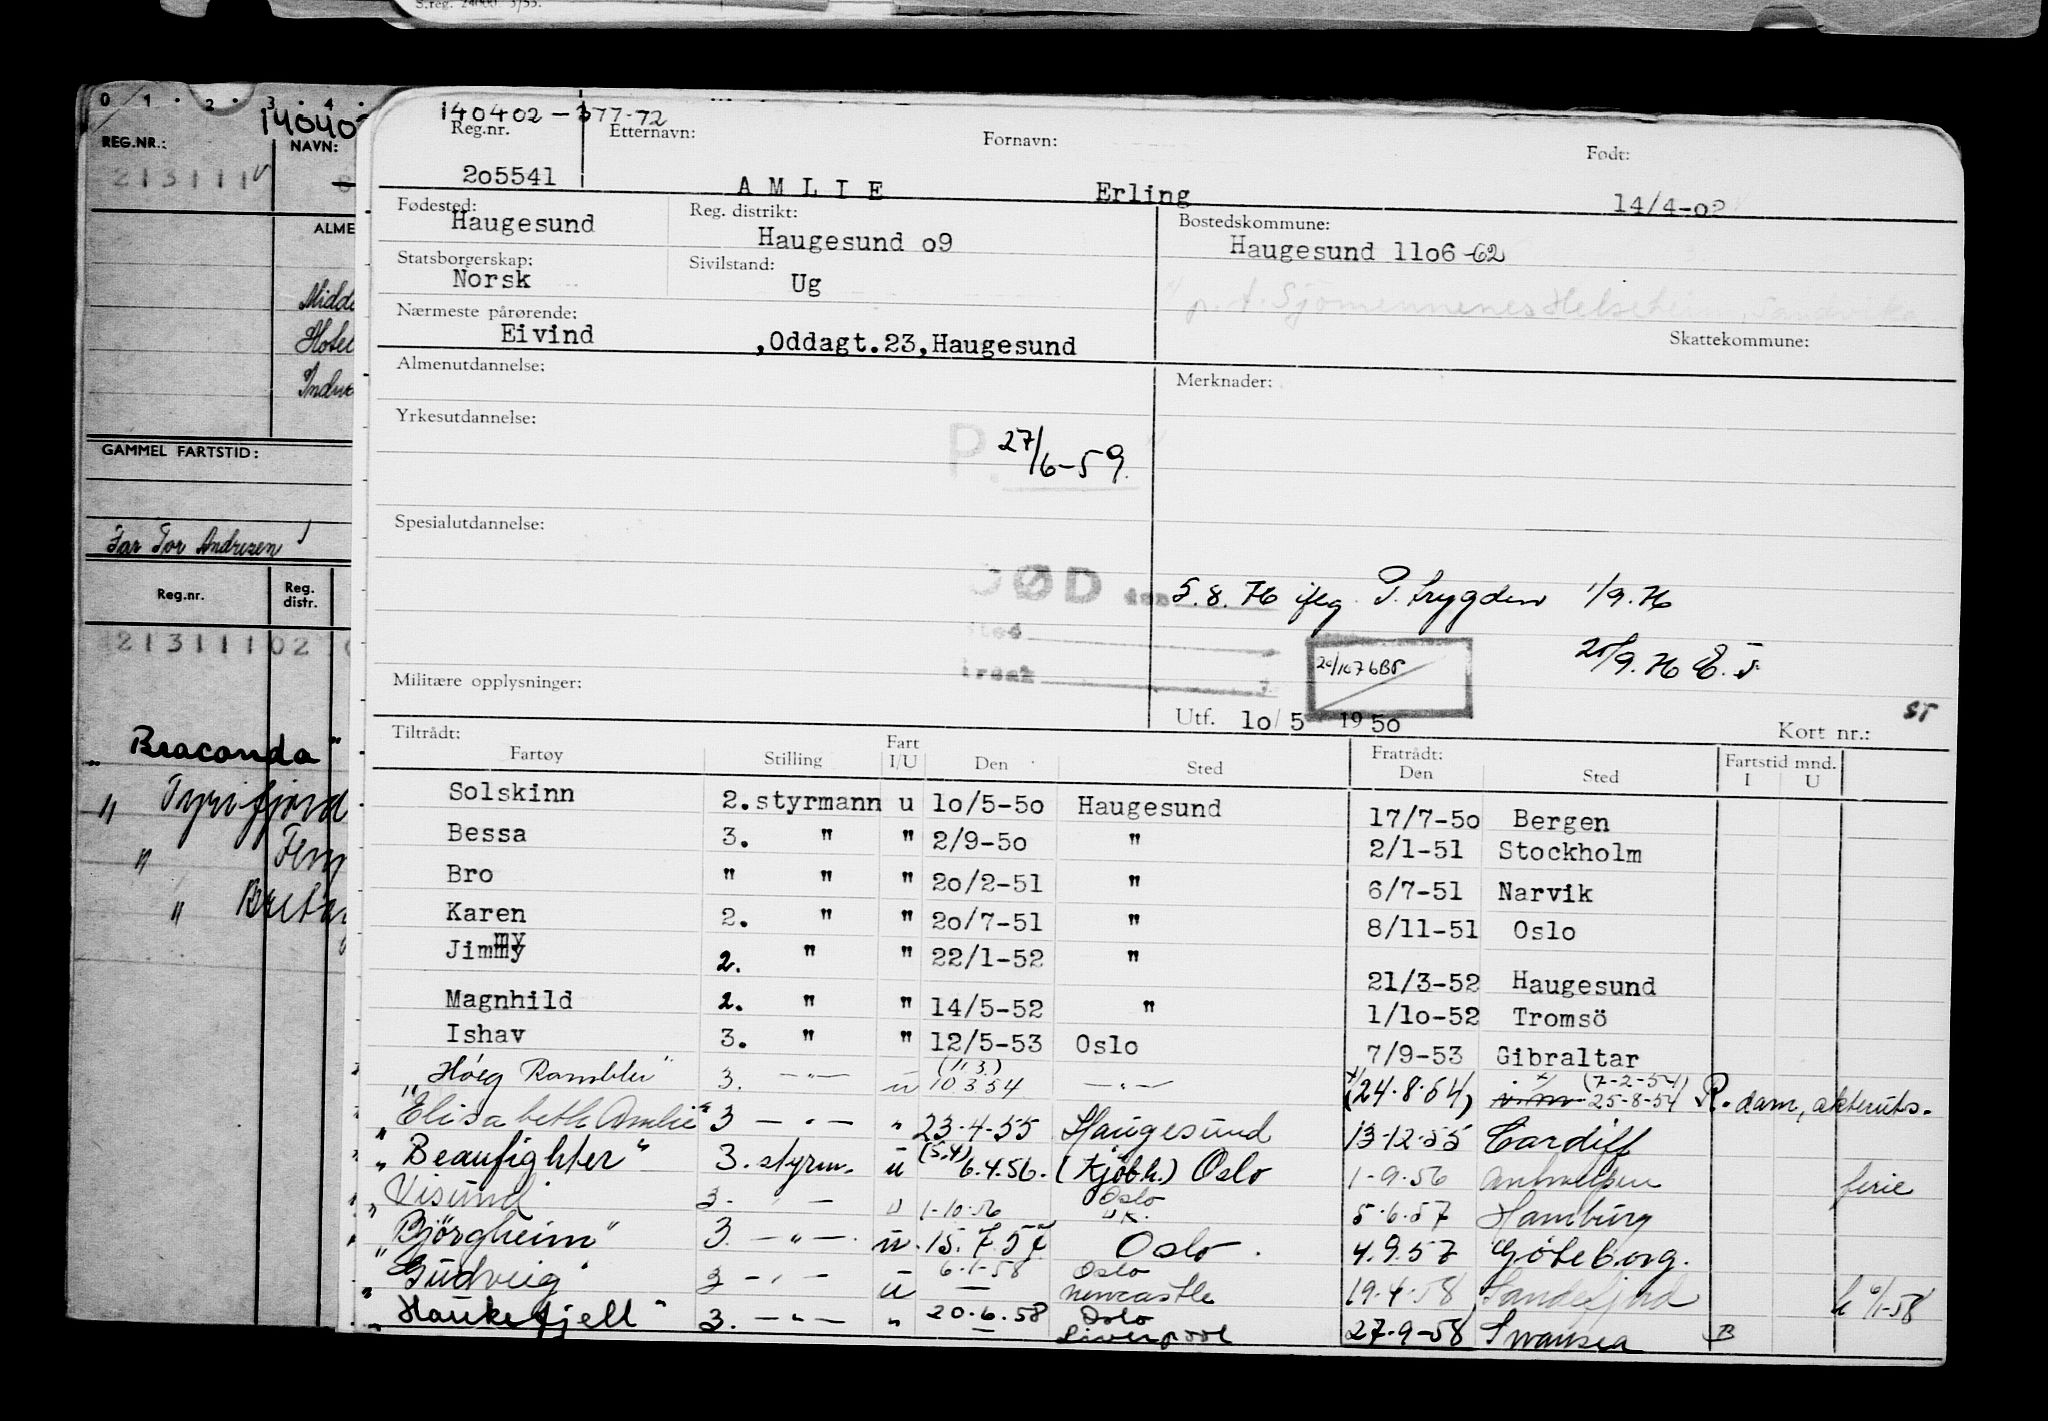 S.reg. 24000. 3/53.
0 1 . 2 . 3 . 4 .
14040
REG.NR.:
NAVN:
213111 v
ALME
Midde
Hotel
GAMMEL FARTSTID:
Far Tor Andresen
Reg.nr.
Reg. distr.
21311102
" Braconda "
" Tyrifjord
"
"
140402 - 377-72
Reg.nr. Etternavn: Fornavn: Født:
205541 AMLIE Erling 14/4-02
Fødested: Reg. distrikt: Bostedskommune:
Haugesund Haugesund o9 Haugesund 11o6-62
Statsborgerskap: Sivilstand:
Norsk Ug
p.t. Sjömennenes Helseheim, Sandvika
Nærmeste pårørende: Skattekommune:
Eivind ,Oddagt.23,Haugesund
Almenutdannelse: Merknader:
Yrkesutdannelse:
P. 27/6-59.
Spesialutdannelse:
DØD den 5.8.76 iflg. P. trygden 1/9.76
sted
20/1076BS
Militære opplysninger:
Utf. 10/5 1950 Kort nr.: ST
Tiltrådt: Fratrådt: Fartstid mnd.
Fartøy Stilling Fart I/U Den Sted Den Sted I U
Solskinn 2.styrmann u 1o/5-5o Haugesund 17/7-5o Bergen
Bessa 3. " " 2/9-5o " 2/1-51 Stockholm
Bro " " " 2o/2-51 " 6/7-51 Narvik
Karen 2. " " 2o/7-51 " 8/11-51 Oslo
Jimmy 2. " " 22/1-52 " 21/3-52 Haugesund
Magnhild 2. " " 14/5-52 " 1/1o-52 Tromsö
Ishav 3. " " 12/5-53 Oslo 7/9-53 Gibraltar
" Höeg Rambler" 3. — " — u (11.3.) 10 3 54 — " — (24.8.54) (7-2-54) 25-8-54 R.dam, akteruts.
" Elisabeth Amlie" 3 — " — " 23.4.55 Haugesund 13-12-55 Cardiff
" Beaufighter" 3. styrm. u (5.4) 6.4.56. (Kjöbh.) Oslo 1-9.56 Antwerpen ferie
" Visund" 3. — " — " 1-10.56 Oslo 5.6.57 Hamburg
" Björgheim" 3. — " — . u. 15.7.57 Oslo . 4.9.57 Göteborg.
" Gudveig" 3 — " — u 6.1-58 Oslo Newcastle 19.4.58 Sandefjord
" Haukefjell " 3. — " — " 20.6.58 Oslo Liverpool 27.9-58 Swansea B